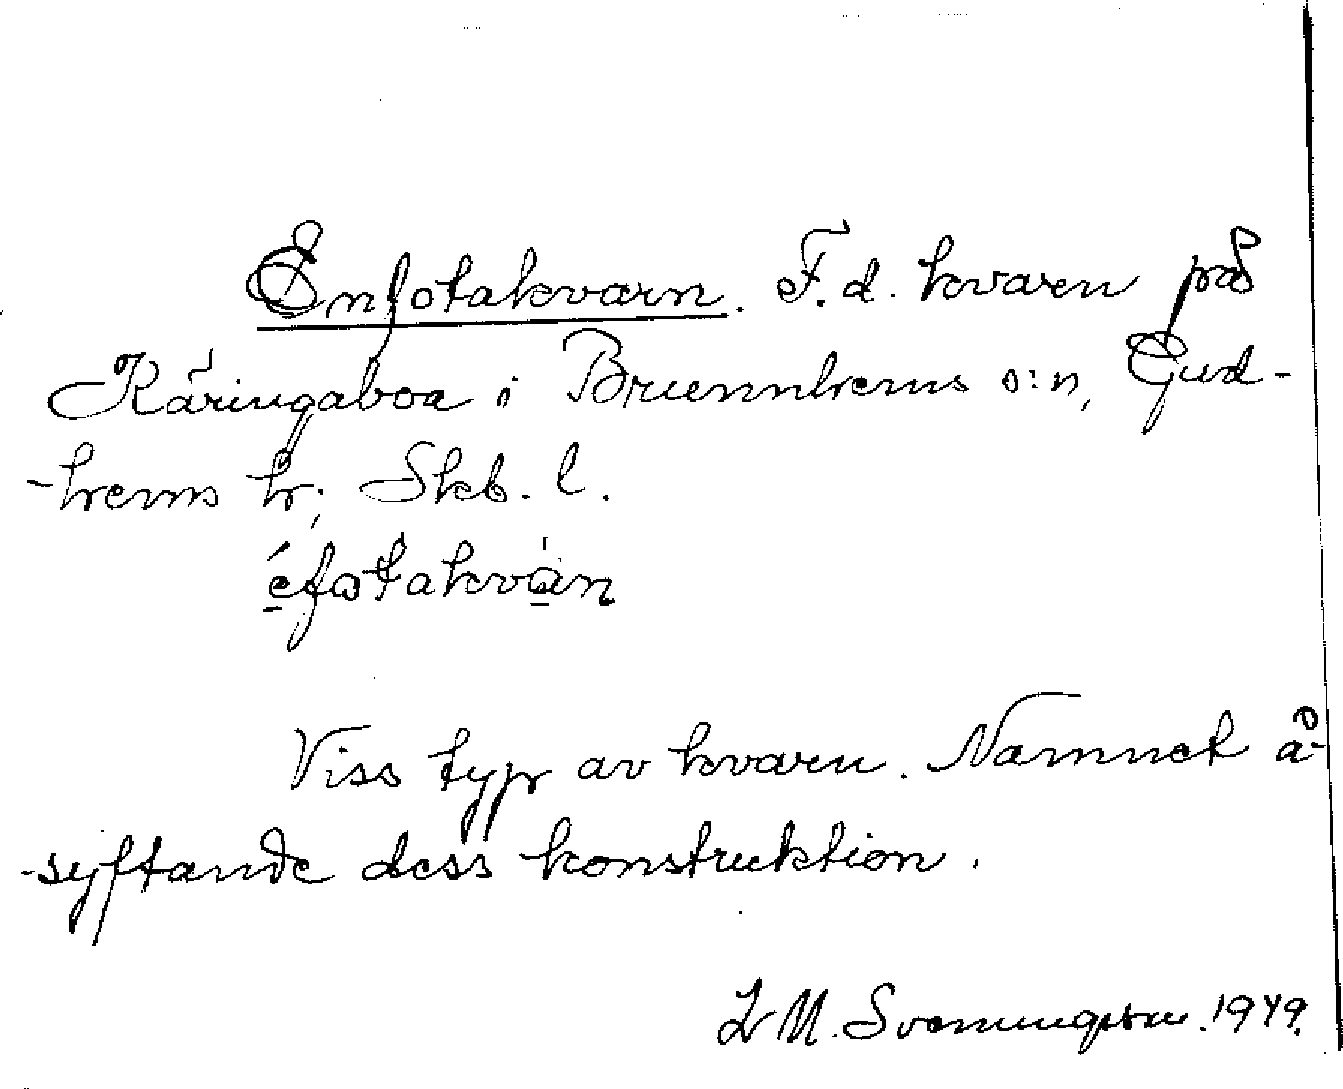 Enfotakvarn. F.d. kvarn på
Käringaboa i Brunnhems s:n, Gud-
-hems hr; Skb. l.
éfotakván
Viss typ av kvarn. Namnet å-
-syftande dess konstruktion.
L M. Svenungsson. 1949.